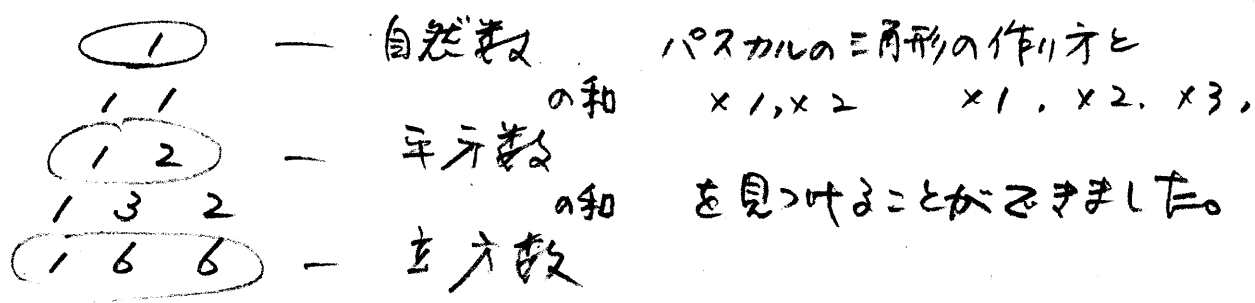 1 — 自然数 パスカルの三角形の作り方と
1 1 の和 ×1,×2 ×1.×2.×3,
1 2 — 平方数
1 3 2 の和 を見つけることができました。
1 6 6 — 立方数